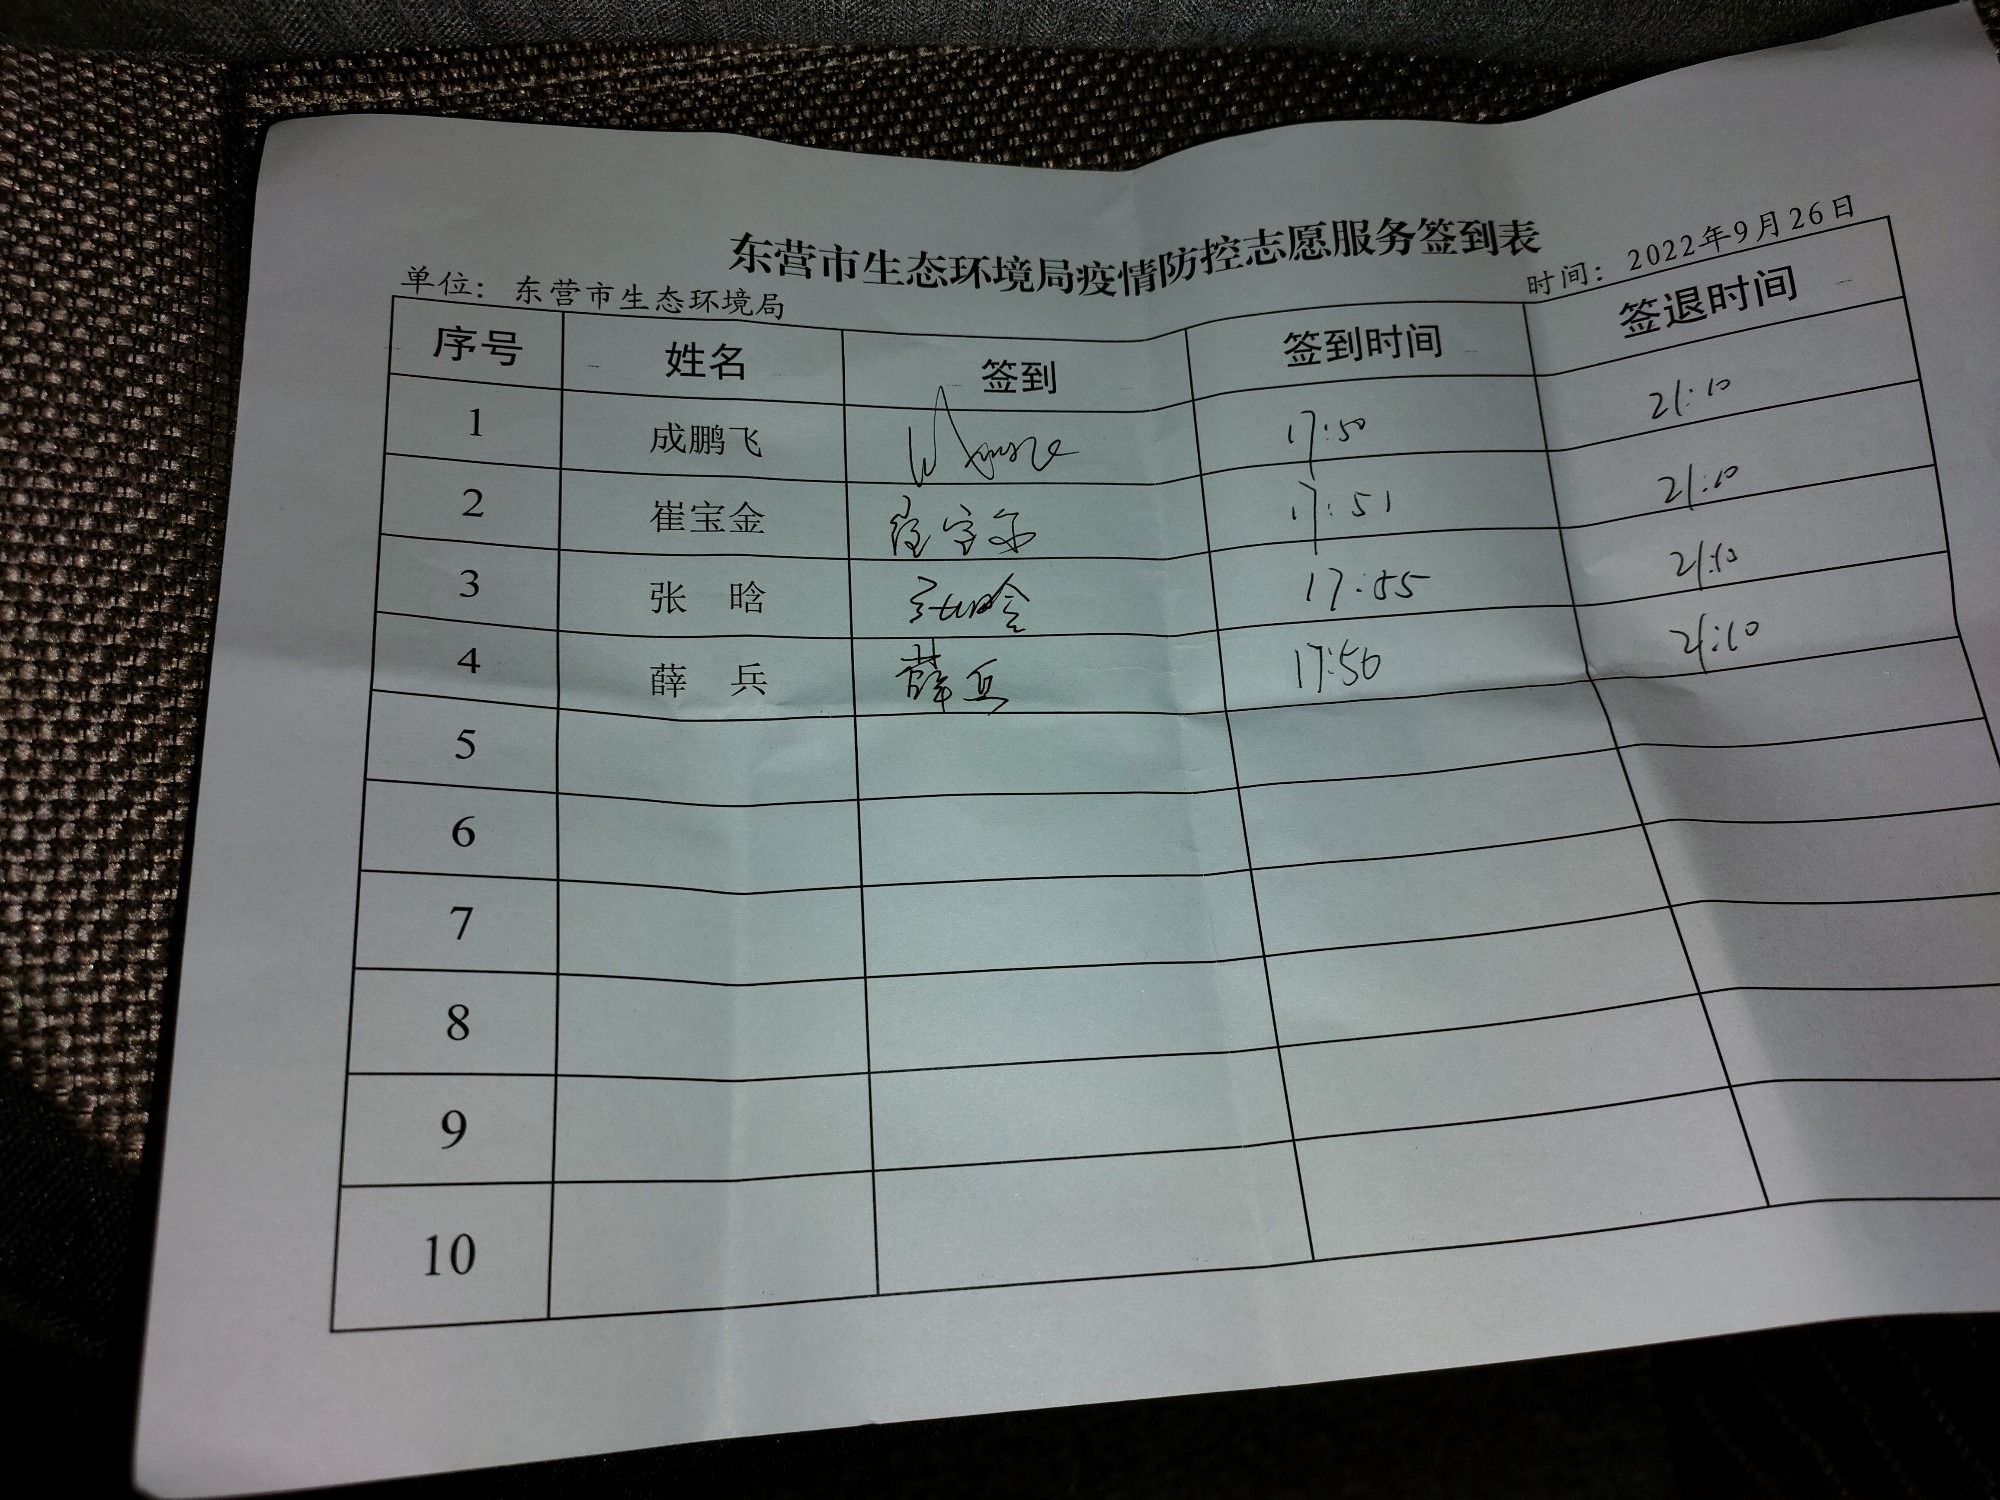 东营市生态环境局疫情防控志愿服务签到表
单位：东营市生态环境局 时间：2022年9月26日
序号 姓名 签到 签到时间 签退时间
1 成鹏飞 17:50 21:10
2 崔宝金 崔宝金 17:51 21:10
3 张 晗 张晗 17:55 21:10
4 薛 兵 薛兵 17:56 21:10
5
6
7
8
9
10